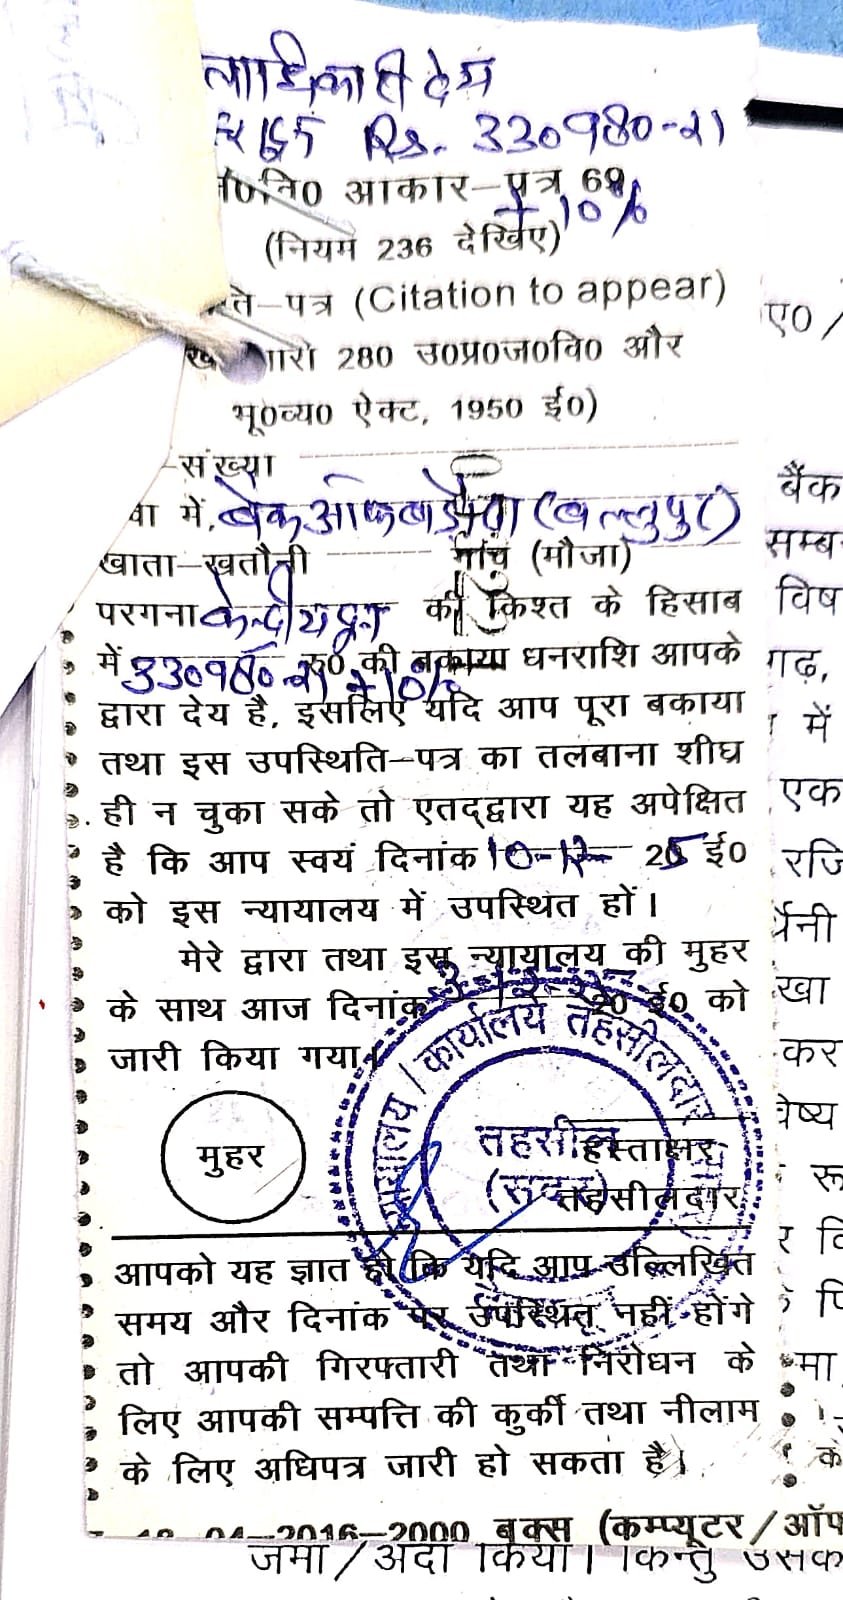 Rs. 330980-21
आकार-पत्र 69
+ 10%
(नियम 236 देखिए)
-पत्र (Citation to appear)
280 उ०प्र०ज०वि० और
भू०व्य० ऐक्ट, 1950 ई०)
-संख्या
में, बैंक ऑफ बड़ौदा (बल्लुपुर)
खाता-खतौनी गांव (मौजा)
परगना की किश्त के हिसाब
में 330980-21 + 10% रु० की बकाया धनराशि आपके
द्वारा देय है, इसलिए यदि आप पूरा बकाया
तथा इस उपस्थिति-पत्र का तलबाना शीघ्र
ही न चुका सके तो एतद्द्वारा यह अपेक्षित
है कि आप स्वयं दिनांक 10-12- 25 ई०
को इस न्यायालय में उपस्थित हों।
मेरे द्वारा तथा इस न्यायालय की मुहर
के साथ आज दिनांक 20 ई० को
जारी किया गया।
कार्यालय तहसीलदार
मुहर
तहसील
(सदर)
हस्ताक्षर
तहसीलदार
आपको यह ज्ञात हो कि यदि आप उल्लिखित
समय और दिनांक पर उपस्थित नहीं होंगे
तो आपकी गिरफ्तारी तथा निरोधन के
लिए आपकी सम्पत्ति की कुर्की तथा नीलाम
के लिए अधिपत्र जारी हो सकता है।
04-2016-2000 बुक्स (कम्प्यूटर/ऑफ
जमा/अदा किया। किन्तु उसक
ए०/
बैंक
सम्ब
विष
गढ़,
में
एक
रजि
खा
कर